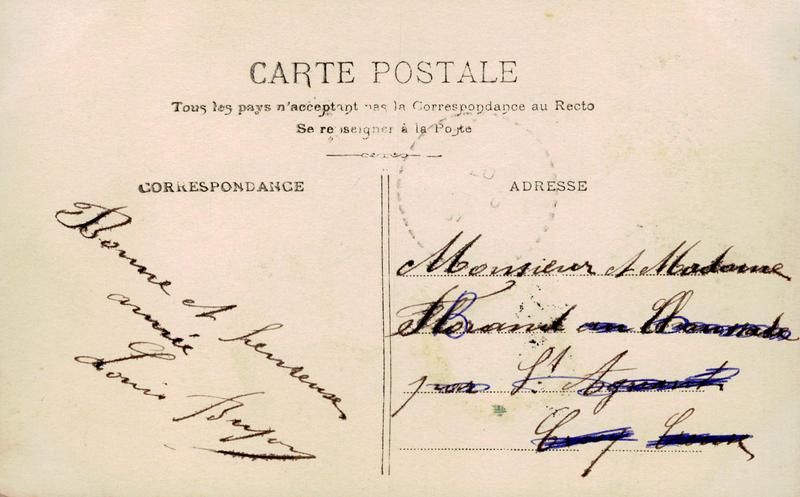 CARTE POSTALE
Tous les pays n'acceptent pas la Correspondance au Recto
Se renseigner à la Poste
CORRESPONDANCE
ADRESSE
Bonne et heureuse
année
Louis
Monsieur et Madame
Florand au
par St